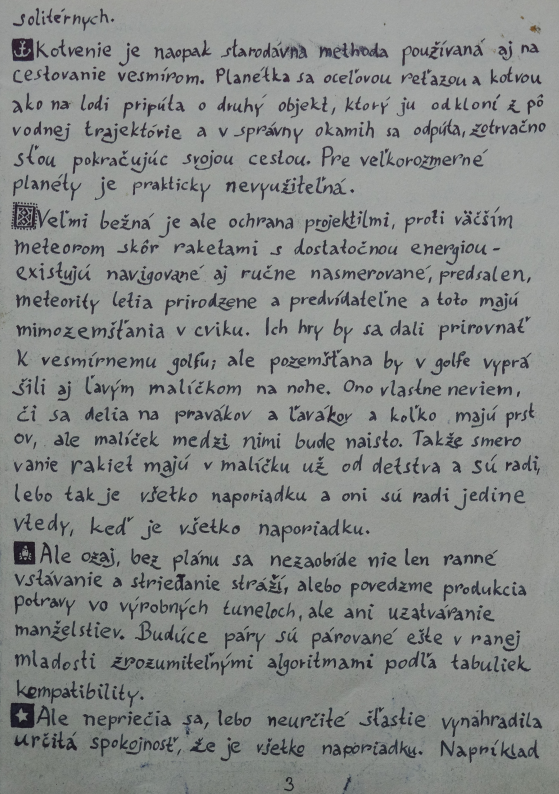 solitérnych.
Kotvenie je naopak starodávna methoda používaná aj na
cestovanie vesmírom. Planétka sa oceľovou reťazou a kotvou
ako na lodi pripúta o druhý objekt, ktorý ju odkloní z pô
vodnej trajektórie a v správny okamih sa odpúta, zotrvačno
sťou pokračujúc svojou cestou. Pre veľkorozmerné
planéty je prakticky nevyužiteľná.
Veľmi bežná je ale ochrana projektilmi, proti väčším
meteorom skôr raketami s dostatočnou energiou -
existujú navigované aj ručne nasmerované, predsalen,
meteority letia prirodzene a predvídateľne a toto majú
mimozemšťania v cviku. Ich hry by sa dali prirovnať
k vesmírnemu golfu; ale pozemšťana by v golfe vyprá
šili aj ľavým malíčkom na nohe. Ono vlastne neviem,
či sa delia na pravákov a ľavákov a koľko majú prst
ov, ale malíček medzi nimi bude naisto. Takže smero
vanie rakiet majú v malíčku už od detstva a sú radi,
lebo tak je všetko naporiadku a oni sú radi jedine
vtedy, keď je všetko naporiadku.
Ale ozaj, bez plánu sa nezaobíde nie len ranné
vstávanie a striedanie stráží, alebo povedzme produkcia
potravy vo výrobných tuneloch, ale ani uzatváranie
manželstiev. Budúce páry sú párované ešte v ranej
mladosti zrozumiteľnými algoritmami podľa tabuliek
kompatibility.
Ale nepriečia sa, lebo neurčité šťastie vynahradila
určitá spokojnosť, že je všetko naporiadku. Napríklad
3